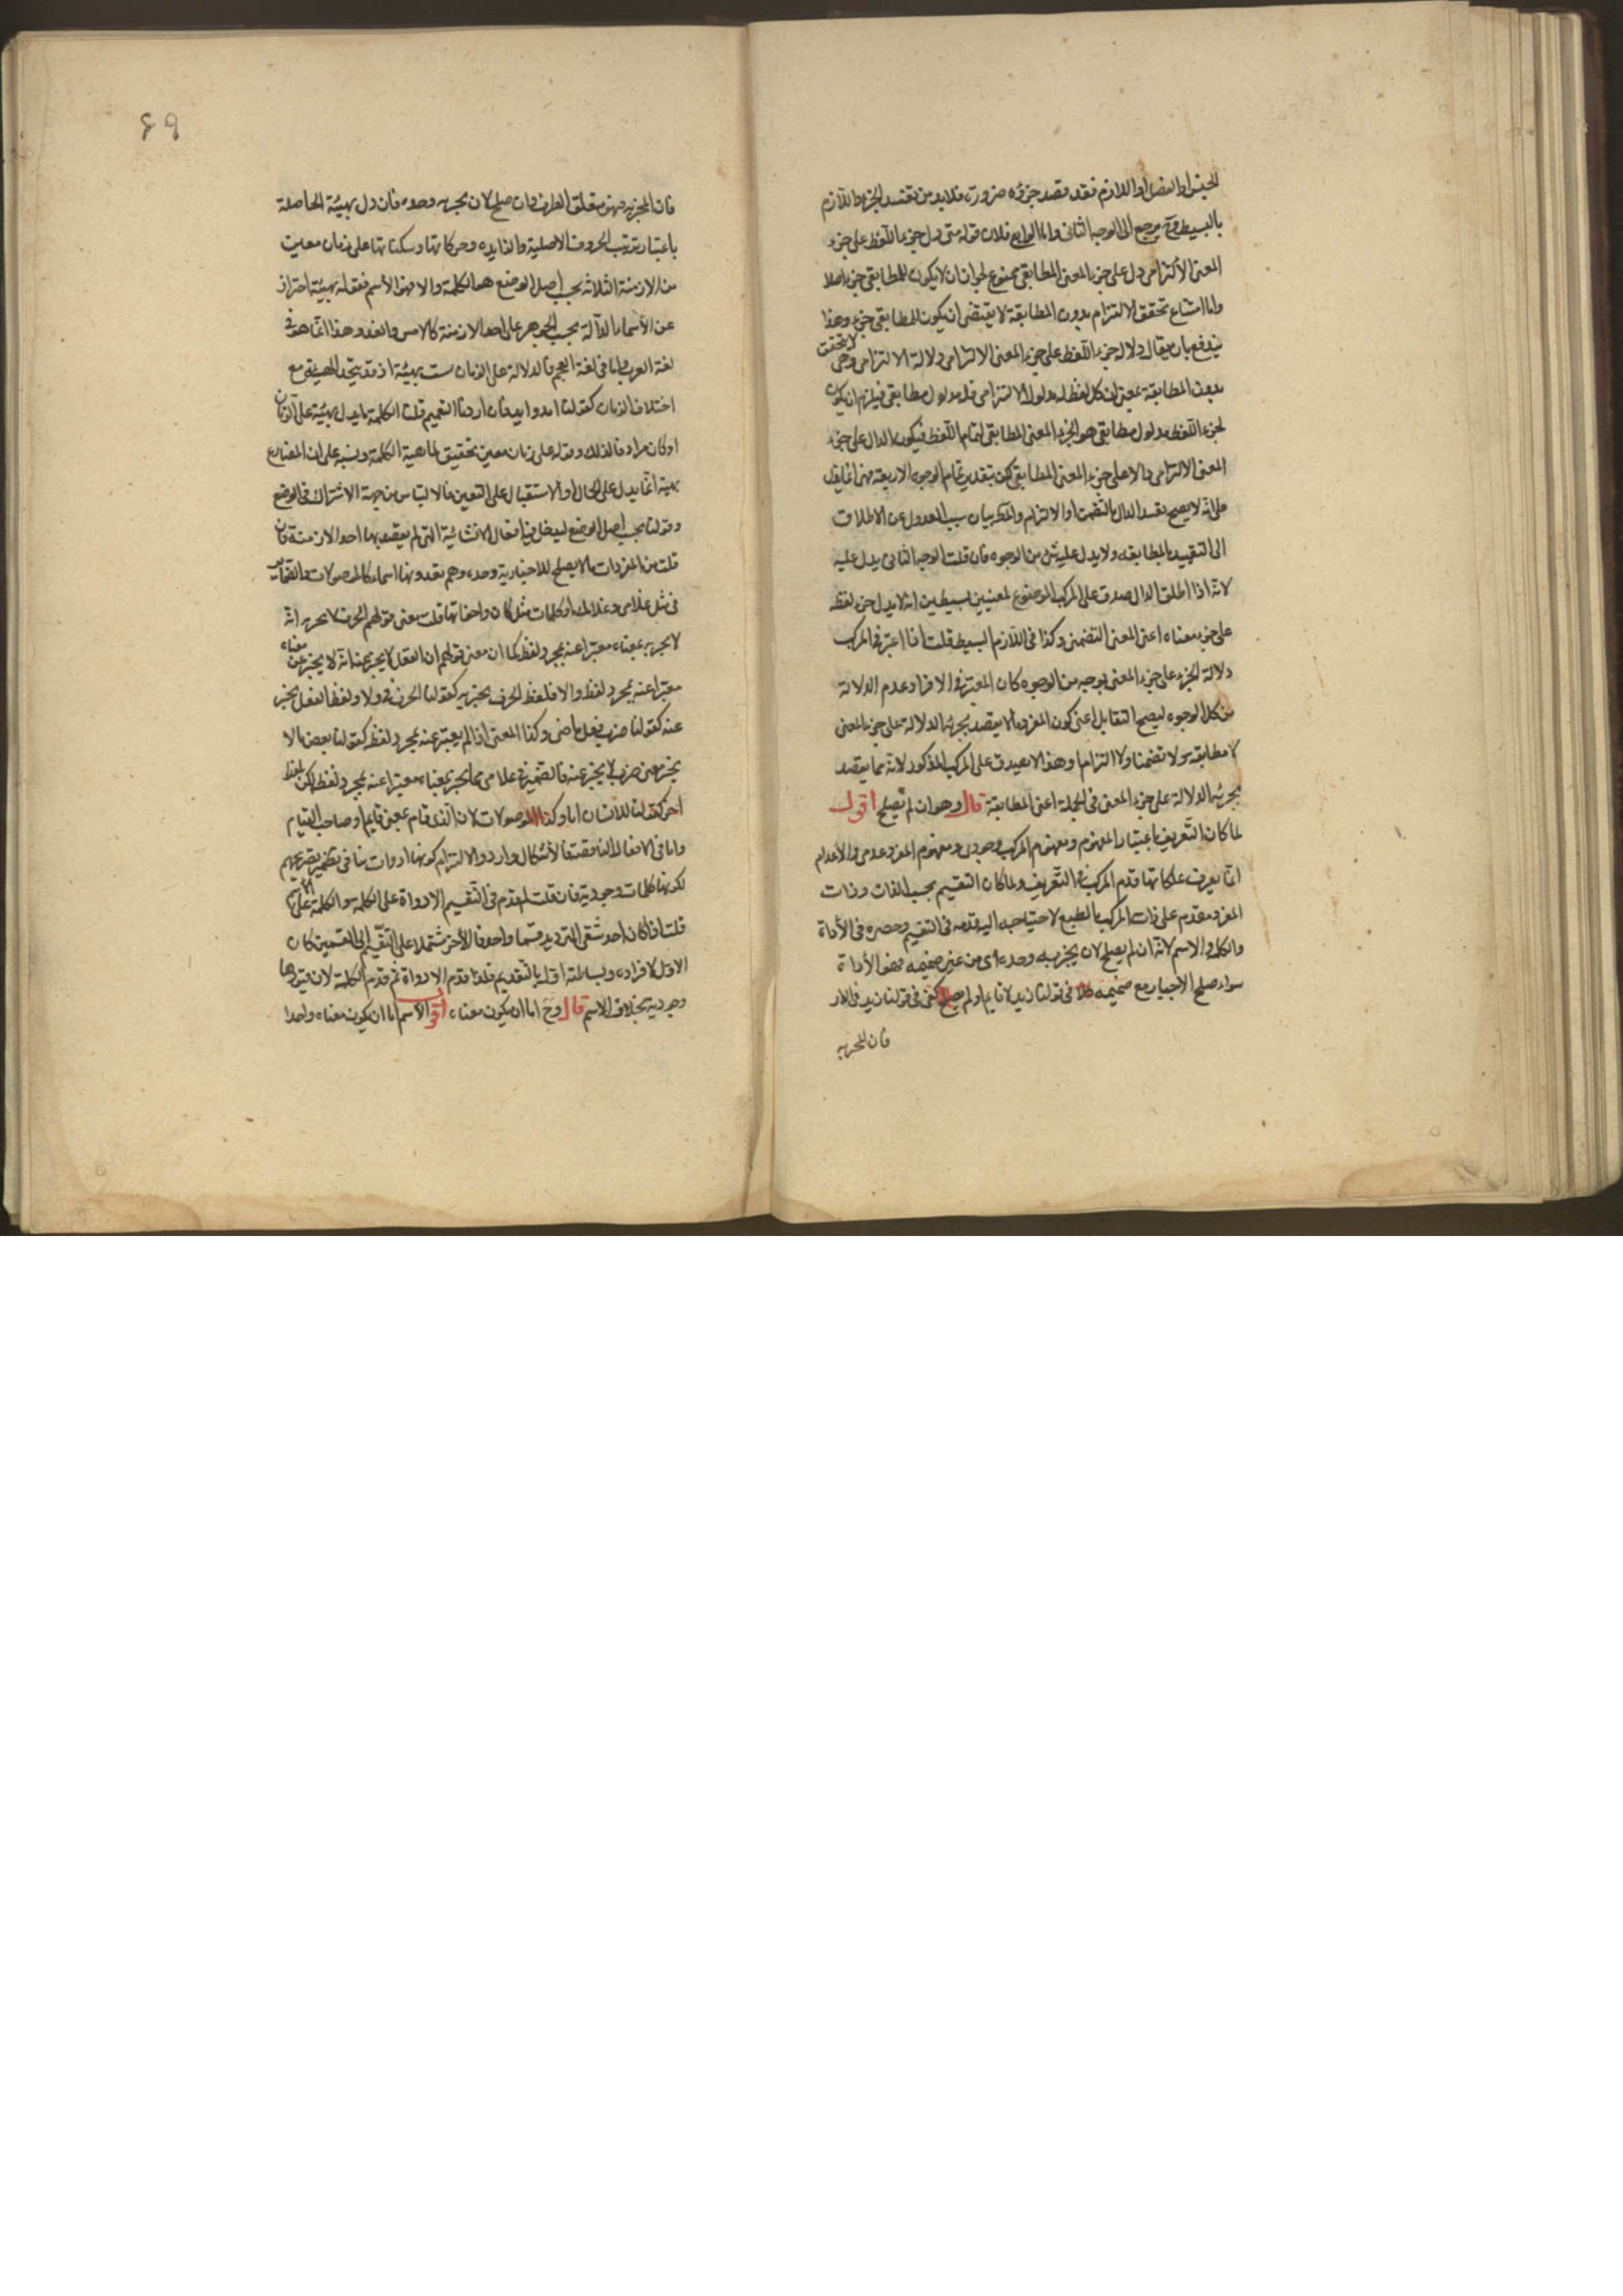 للجنس او الفصل او اللازم فقد قصد جزؤه ضرورة فلا بد من تقييد الجزء واللازم
بالبسيط وح يرجع الى الوجه الثانى واما الرابع فلان قوله متى دل جزء اللفظ على جزء
المعنى الالتزامى دل على جزء المعنى المطابقى ممنوع لجواز ان لا يكون للمطابقى جزء اصلا
واما امتناع تحقق الالتزام بدون المطابقة لا يقتضى ان يكون للمطابقى جزء وهذا
يندفع بان يقال دلالة جزء اللفظ على جزء المعنى الالتزامى دلالة الالتزام وهى لا تتحقق
بدون المطابقة بمعنى ان كل لفظ له مدلول التزامى فله مدلول مطابقى فيلزم ان يكون
لجزء اللفظ مدلول مطابقى هو الجزء المعنى المطابقى لتمام اللفظ فيكون الدال على جزء
المعنى الالتزامى دالا على جزء المعنى المطابقى لكن بتقدير تمام الوجوه الاربعة فهى انما يدل
على انه لا يصح تقييد الدال بالتضمن او الالتزام والمط بيان سبب العدول عن الاطلاق
الى التقييد بالمطابقه ولا يدل عليه شئ من الوجوه فان قلت الوجه الثانى يدل عليه
لانه اذا اطلق الدال صدق على المركب الموضوع لمعنيين بسيطين انه لا يدل جزء لفظه
على جزء معناه اعنى المعنى التضمنى وكذا فى اللازم البسيط قلت اذا اعتبر فى المركب
دلالة الجزء على جزء المعنى بوجه من الوجوه كان المعتبر فى الافراد عدم الدلالة
من كل الوجوه ليصح التقابل اعنى كون المفرد ما لا يقصد بجزئه الدلالة على جزء المعنى
لا مطابقة ولا تضمنا ولا التزاما وهذا لا يصدق على المركب المذكور لانه مما يقصد
بجزئه الدلالة على جزء المعنى فى الجملة اعنى المطابقة قال وهو ان لم يصلح اقول
لما كان التعريف باعتبار المفهوم ومفهوم المركب وجودى ومفهوم المفرد عدمى والاعدام
انما يعرف بملكاتها قدم المركب فى التعريف ولما كان التقسيم بحسب الذات وذات
المفرد مقدم على ذات المركب بالطبع لاحتياجه اليه قدمه فى التقسيم وحصره فى الأداة
والكلمة والاسم لانه ان لم يصلح لان يخبر به وحده اى من غير ضميمه فهو الأداة
سواء صلح الاخبار مع ضميمه كلا فى قولنا زيد لا قايم او لم يصلح كفى فى قولنا زيد فى الدار
فان المخبر به
٤٩
فان المخبر به فهو متعلق الظرف وان صلح لان يخبر به وحده فان دل بهيئة الحاصلة
باعتبار ترتب الحروف الاصلية والزايده وحركاتها وسكناتها على زمان معين
من الازمنة الثلاثة بحسب اصل الوضع فهو الكلمة والا فهو الأسم فقوله بهيئة احتراز
عن الأسماء الدالة بحسب الجوهر على احد الازمنة كالامس والغد وهذا انما هو فى
لغة العرب واما فى لغة العجم فالدلالة على الزمان ليست بهيئة اذ قد يتحد الهيئة مع
اختلاف الزمان كقولنا امد وايد فان اردنا التعميم قلنا الكلمة ما يدل بهيئة على الزمان
او كان مرادفا لذلك وقوله على زمان معين تحقيق لماهية الكلمة وتنبيه على ان المضارع
بهيئة انما يدل على الحال او الاستقبال على التعيين فالالتباس من جهة الاشتراك فى الوضع
وقولنا بحسب اصل الوضع ليدخل فيه افعال الانشائية التى لم يقصد بها احد الازمنة فان
قلت من المفردات ما لا يصلح للاخبار به وحده وهم يعدونها اسماء كالموصولات والضماير
فى مثل غلامى وغلامك او كلمات مثل كان واخواتها قلت معنى قولهم الحرف لا يخبر به انه
لا يخبر به بمعناه معتبرا عنه بمجرد لفظه كما ان معنى قولهم ان الفعل لا يخبر عنه انه لا يخبر عن معناه
معتبرا عنه بمجرد لفظه والا فلفظ الحرف يخبر به كقولنا الحرف فى ولا ولفظ الفعل يخبر
عنه كقولنا ضرب فعل ماضى وكذا المعنى اذا لم يعتبر عنه بمجرد لفظه كقولنا بعض ما لا
يخبر معنى ضرب لا يخبر عنه فالضمير فى غلامى مما يخبر بمعناه معتبرا عنه بمجرد لفظه لكن بلفظ
اخر كقولنا للانسان انا وكذا الموصولات لان الذى قام بمعنى قايم او صاحب القيام
واما فى الافعال الناقصة فالأشكال وارد والالتزام كونها ادوات ينافى تصريحهم
لكونها كلمات وجودية فان قلت لم قدم فى التقسيم الاداة على الكلمة والكلمة على الاسم
قلت اذا كان احد شقى الترديد قسما واحدا والأخر مشتملا على التقسيم الى القسمين كان
الاول لافراده وبساطته اولى بالتقديم فلذا قدم الاداة ثم قدم الكلمة لان قيودها
وجودية بخلاف الاسم قال وح اما ان يكون معناه اقول الأسم اما ان يكون معناه واحدا